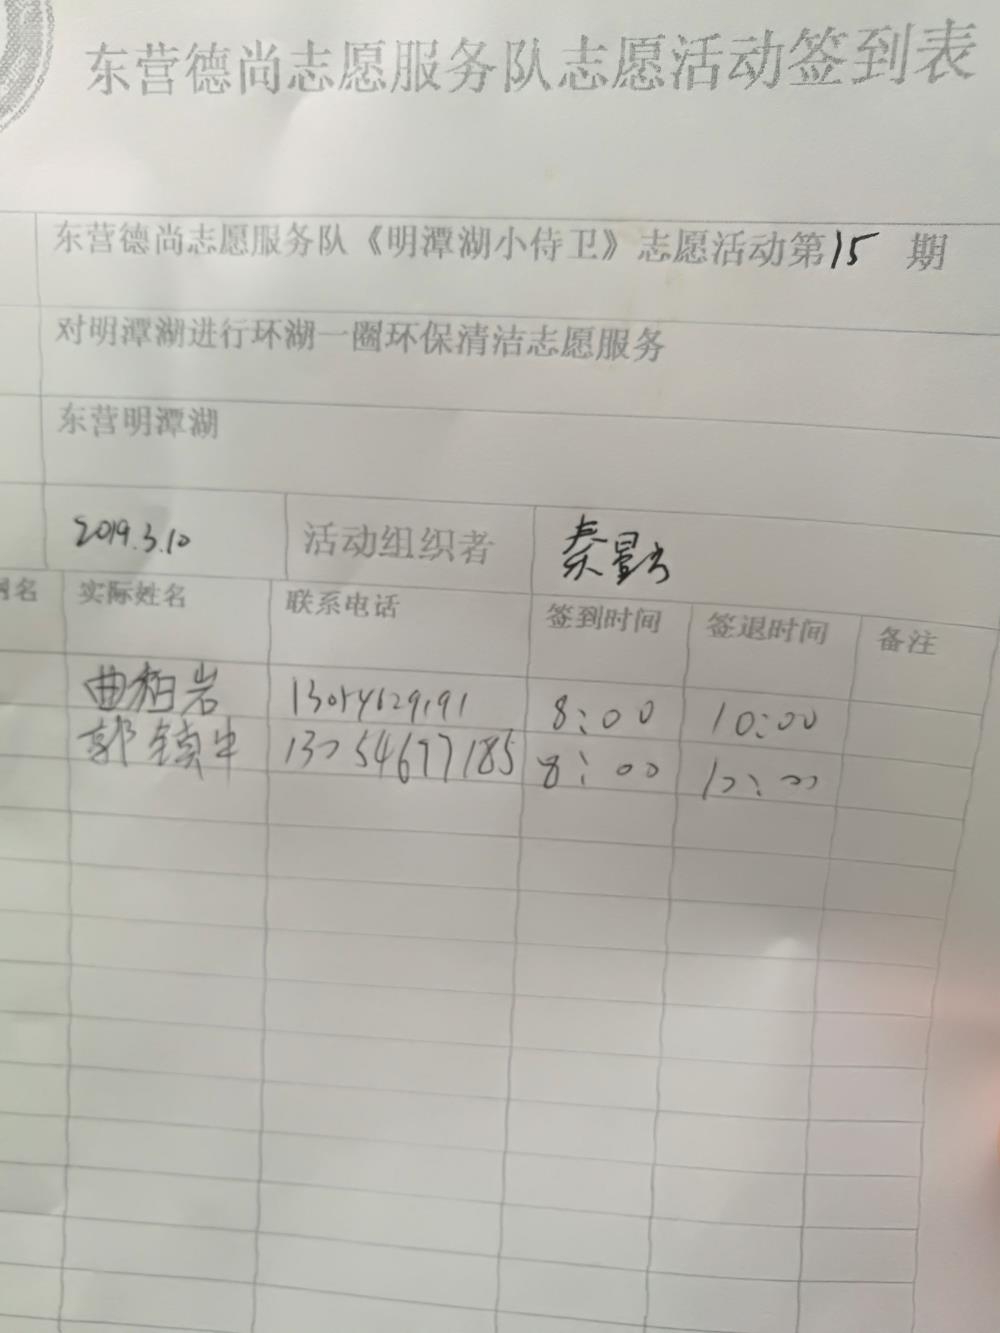 东营德尚志愿服务队志愿活动签到表
东营德尚志愿服务队《明潭湖小侍卫》志愿活动第15 期
对明潭湖进行环湖一圈环保清洁志愿服务
东营明潭湖
2019.3.10 活动组织者 秦
网名 实际姓名 联系电话 签到时间 签退时间 备注
曲 岩 8:00 10:00
郭镇 8:00 10:00